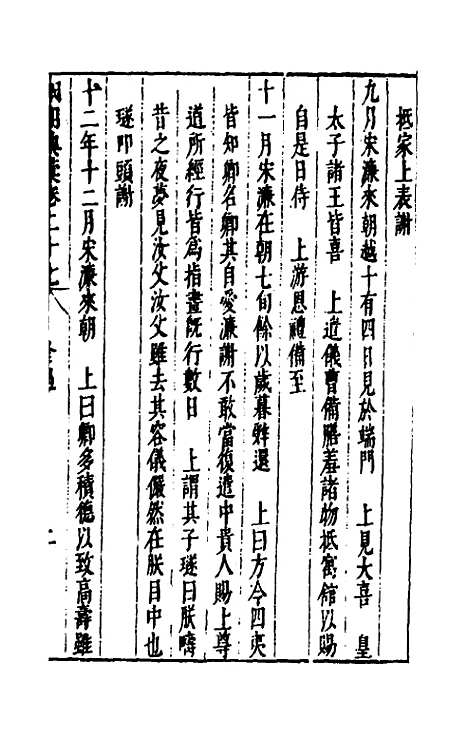 抵家上表謝
九月宋濂來朝越十有四日見於端門　上見大喜　皇
太子諸王皆喜　上遣儀曹備膳羞諸物抵寓館以賜
自是日侍　上游恩禮備至
十一月宋濂在朝七旬餘以歲暮辭還　上曰方今四夷
皆知卿名卿其自愛濂謝不敢當復遣中貴人賜上尊
道所經行皆為指畫旣行數日　上謂其子璲曰朕疇
昔之夜夢見汝父汝父雖去其容儀儼然在朕目中也
璲叩頭謝
十二年十二月宋濂來朝　上曰卿多積德以致高壽雖
典彙卷二十七